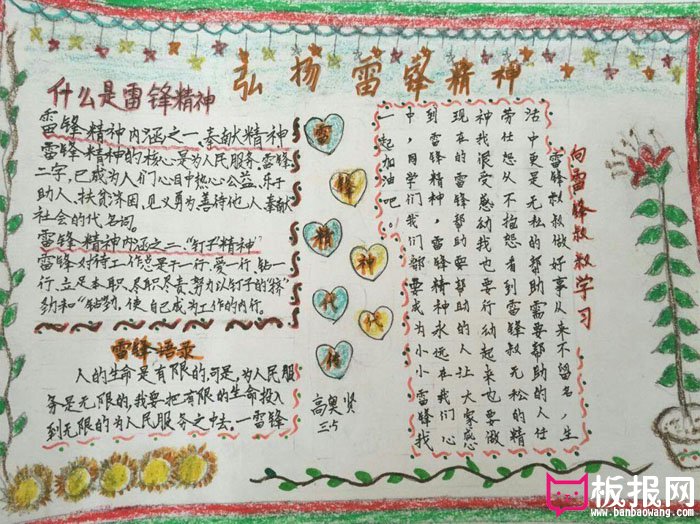 弘扬雷锋精神
什么是雷锋精神
雷锋精神内涵之一、奉献精神
雷锋精神的核心是为人民服务。雷锋
二字,已成为人们心目中热心公益、乐于
助人、扶贫济困、见义勇为、善待他人、奉献
社会的代名词。
雷锋精神内涵之二、“钉子精神”
雷锋对待工作总是干一行、爱一行、钻一
行,立足本职、尽职尽责,努力以钉子的“挤”
劲和“钻”劲,使自己成为工作的内行。
雷锋语录
人的生命是有限的,可是,为人民服
务是无限的,我要把有限的生命投入
到无限的为人民服务之中去。一雷锋
雷
锋
精
神
代
高奥贤
三5
向雷锋叔叔学习
雷锋叔叔做好事从来不留名,生
活中更是无私的帮助需要帮助的人任
劳任怨从不抱怨看到雷锋叔无私的精
神我很受感动我也要行动起来也要做
现在的雷锋帮助要帮助的人让大家感
到雷锋精神,雷锋精神永远在我们心
中,同学们我们都要成为小小雷锋我
一起加油吧!
板报网
www.banbaowang.com